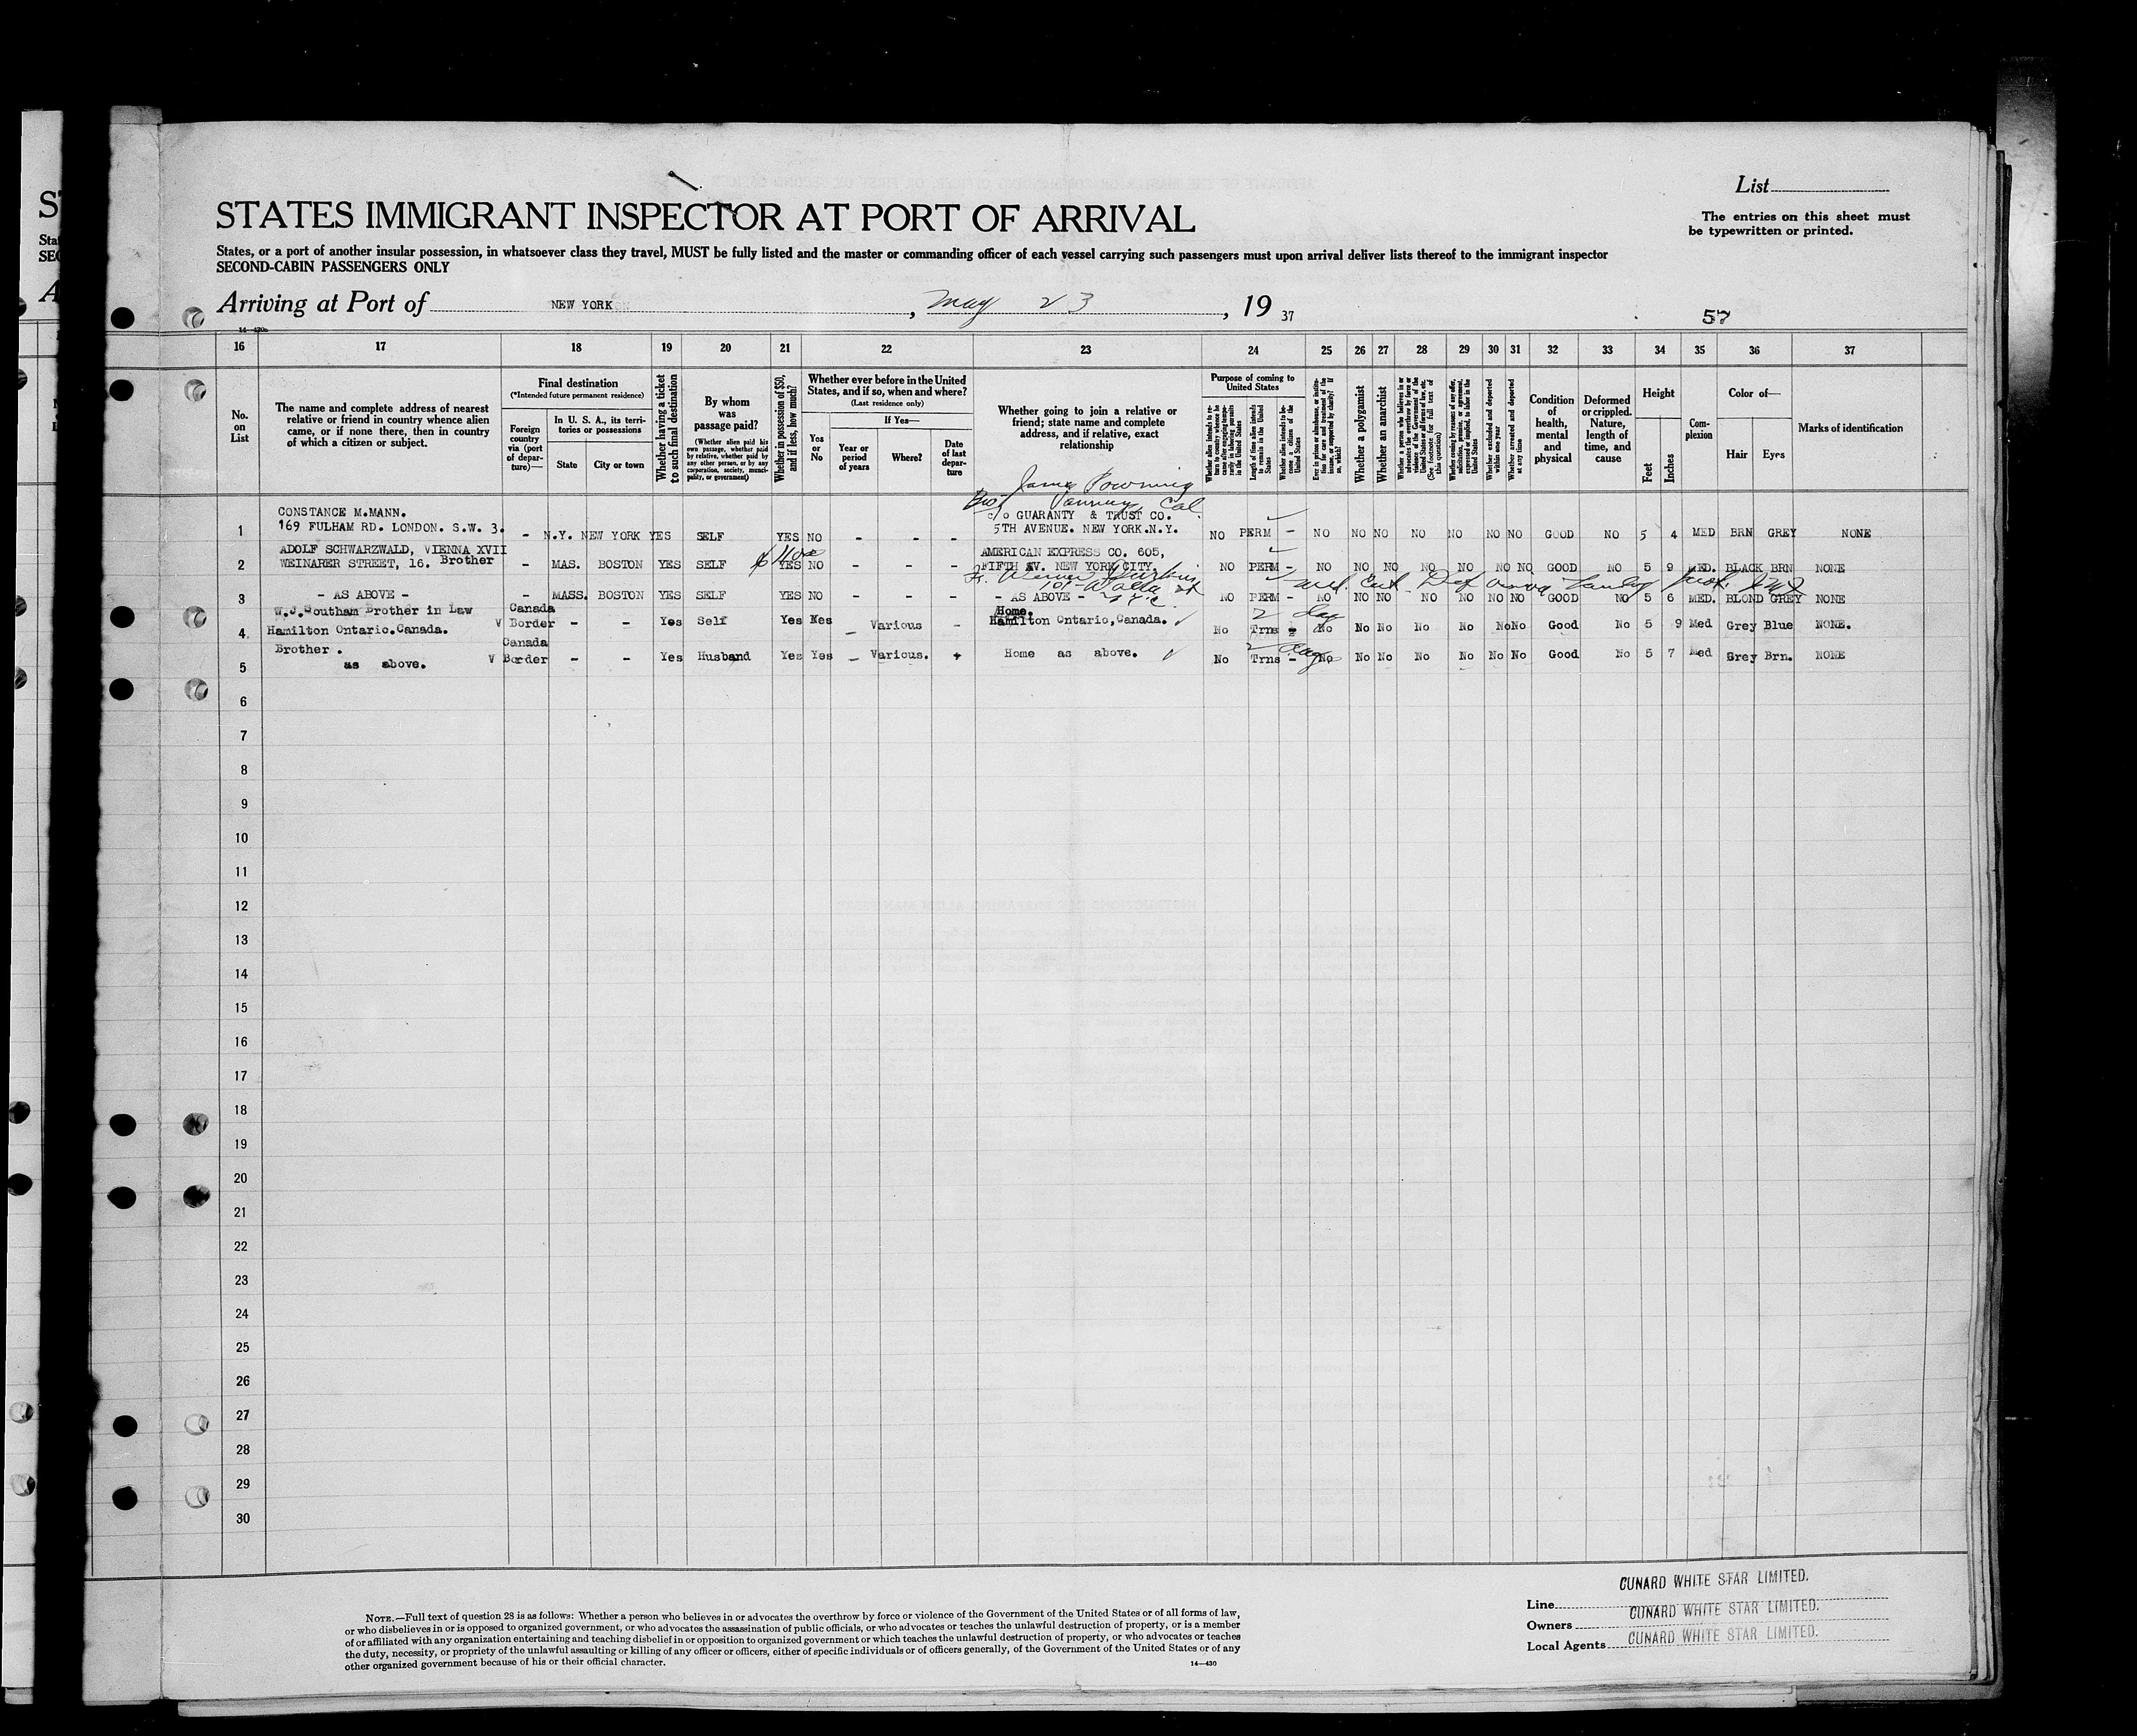 List
STATES IMMIGRANT INSPECTOR AT PORT OF ARRIVAL
The entries on this sheet must
be typewritten or printed.
States, or a port of another insular possession, in whatsoever class they travel, MUST be fully listed and the master or commanding officer of each vessel carrying such passengers must upon arrival deliver lists thereof to the immigrant inspector
SECOND-CABIN PASSENGERS ONLY
Arriving at Port of NEW YORK, May 23, 1937
57
14—430a
16 17 18 19 20 21 22 23 24 25 26 27 28 29 30 31 32 33 34 35 36 37
No. on List
The name and complete address of nearest
relative or friend in country whence alien
came, or if none there, then in country
of which a citizen or subject.
Final destination
(*Intended future permanent residence)
Foreign country via (port of departure)—
In U. S. A., its territories or possessions
State
City or town
Whether having a ticket to such final destination
By whom was passage paid?
(Whether alien paid his own passage, whether paid by relative, whether paid by any other person, or by any corporation, society, municipality, or government)
Whether in possession of $50, and if less, how much?
Whether ever before in the United States, and if so, when and where?
(Last residence only)
Yes or No
If Yes—
Year or period of years
Where?
Date of last departure
Whether going to join a relative or
friend; state name and complete
address, and if relative, exact
relationship
Purpose of coming to United States
Length of time alien intends to remain in the United States
Whether alien intends to become a citizen of the United States
Whether a polygamist
Whether an anarchist
Whether excluded and deported within one year
Whether arrested and deported at any time
Condition of health, mental and physical
Deformed or crippled. Nature, length of time, and cause
Height
Feet
Inches
Complexion
Color of—
Hair
Eyes
Marks of identification
Cal
CONSTANCE M.MANN. c/o GUARANTY & TRUST CO.
1 169 FULHAM RD. LONDON. S.W. 3. - N.Y. NEW YORK YES SELF YES NO - - - 5TH AVENUE. NEW YORK.N.Y. NO PERM - NO NO NO NO NO NO NO GOOD NO 5 4 MED BRN GREY NONE
ADOLF SCHWARZWALD, VIENNA XVII AMERICAN EXPRESS CO. 605,
2 WEINARER STREET, 16. Brother - MAS. BOSTON YES SELF YES NO - - - FIFTH AV. NEW YORK CITY. NO PERM - NO NO NO NO NO NO NO GOOD NO 5 9 MED. BLACK BRN NONE
3 - AS ABOVE - - MASS. BOSTON YES SELF YES NO - - - - AS ABOVE - NO PERM - NO NO NO NO NO NO NO GOOD NO 5 6 MED. BLOND GREY NONE
W.J.Southam Brother in Law Canada Home. 2 days
4. Hamilton Ontario.Canada. V Border - - Yes Self Yes Yes - Various - Hamilton Ontario,Canada. No Trns - No No No No No No No Good No 5 9 Med Grey Blue NONE.
Brother . Canada 2 days
5 as above. V Border - - Yes Husband Yes Yes - Various. Home as above. No Trns - No No No No No No No Good No 5 7 Med Grey Brn. NONE
6
7
8
9
10
11
12
13
14
15
16
17
18
19
20
21
22
23
24
25
26
27
28
29
30
NOTE.—Full text of question 28 is as follows: Whether a person who believes in or advocates the overthrow by force or violence of the Government of the United States or of all forms of law,
or who disbelieves in or is opposed to organized government, or who advocates the assassination of public officials, or who advocates or teaches the unlawful destruction of property, or is a member
of or affiliated with any organization entertaining and teaching disbelief in or opposition to organized government or which teaches the unlawful destruction of property, or who advocates or teaches
the duty, necessity, or propriety of the unlawful assaulting or killing of any officer or officers, either of specific individuals or of officers generally, of the Government of the United States or of any
other organized government because of his or their official character.
14—430
Line CUNARD WHITE STAR LIMITED.
Owners CUNARD WHITE STAR LIMITED.
Local Agents CUNARD WHITE STAR LIMITED.